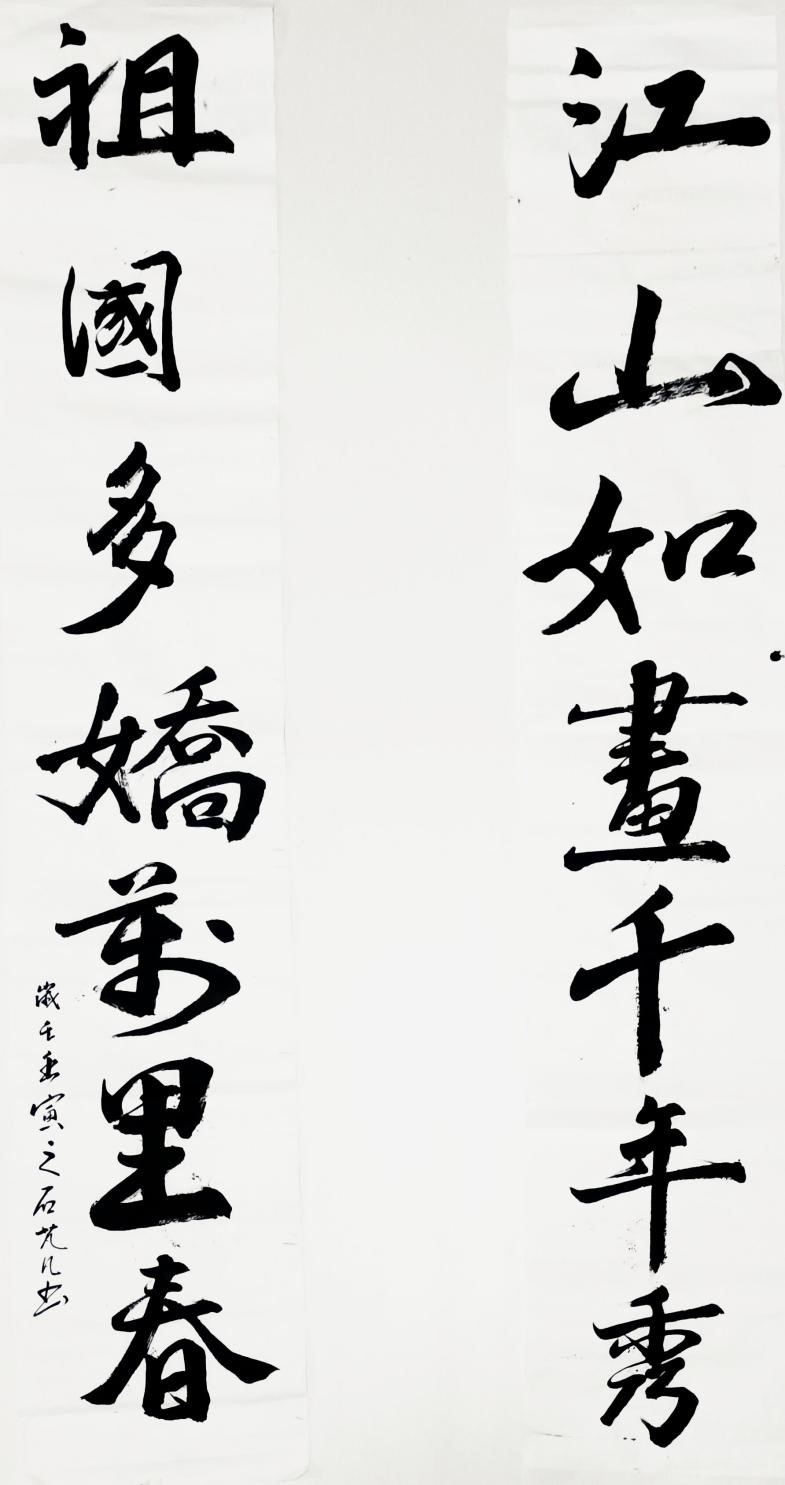 江山如畫千年秀
祖國多嬌萬里春
歲壬寅之石